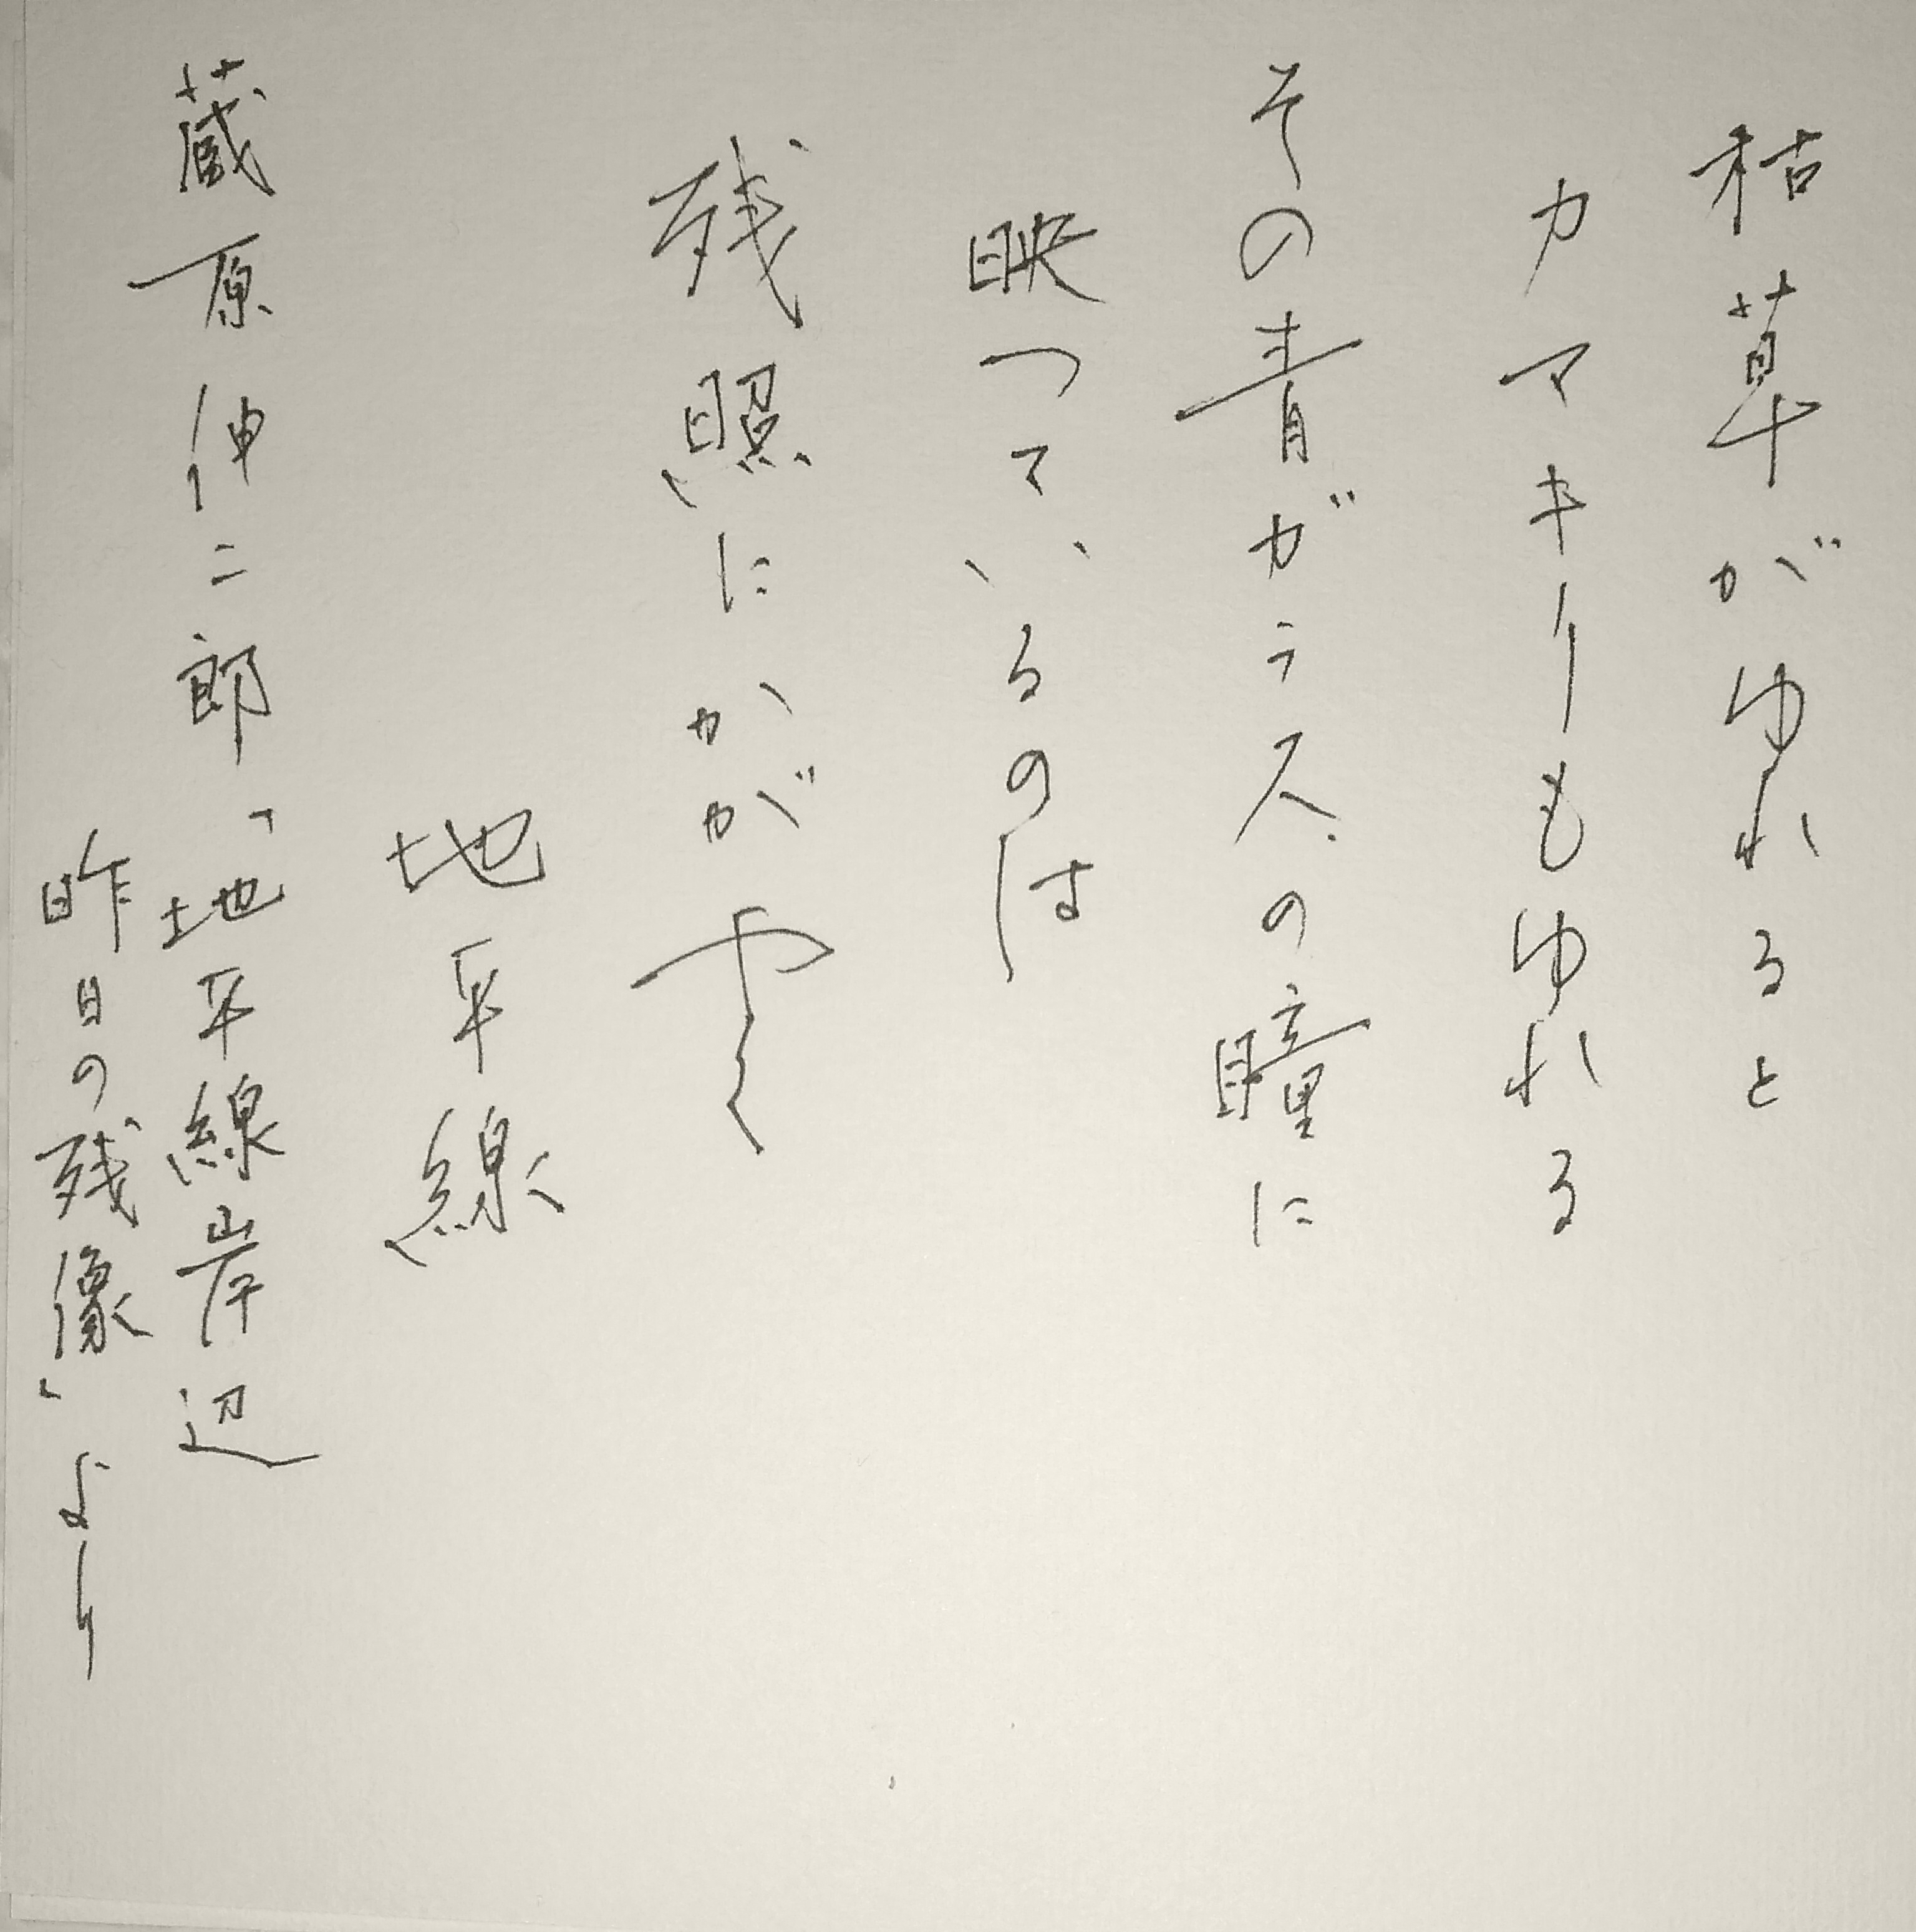 枯草がゆれると
カマキリもゆれる
その青ガラスの瞳に
映つているのは
残照にかがやく
地平線
蔵原伸二郎「地平線岸辺
昨日の残像」より